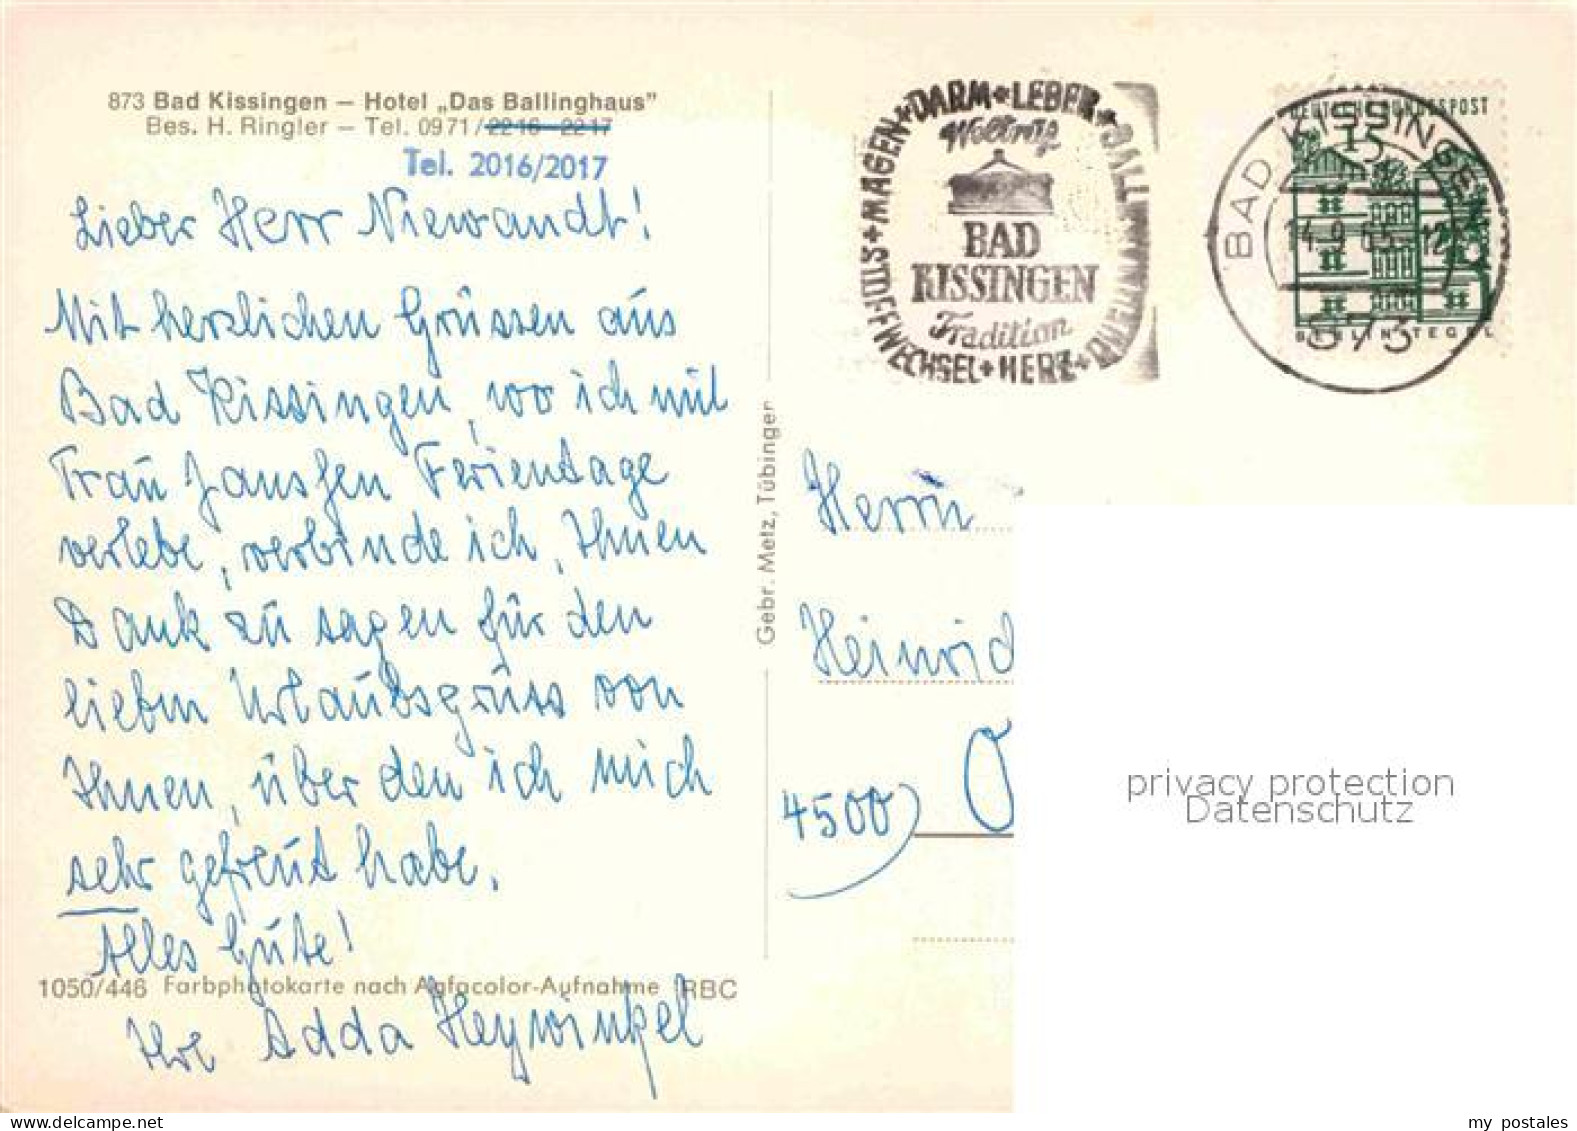 873 Bad Kissingen – Hotel „Das Ballinghaus"
Bes. H. Ringler – Tel. 0971/2216-2217
Tel. 2016/2017
Lieber Herr Niewandt!
Mit herzlichen Grüssen aus
Bad Kissingen, wo ich mit
Frau Janssen Ferientage
verlebe, verbinde ich, Ihnen
Dank zu sagen für den
lieben Urlaubsgruss von
Ihnen, über den ich mich
sehr gefreut habe.
Alles Gute!
1050/446 Farbphotokarte nach Agfacolor-Aufnahme RBC
Ihre Adda Heywinkel
Gebr. Metz, Tübingen
MAGEN + DARM + LEBER + GALLE
STOFFWECHSEL + HERZ +
Weltruf
BAD
KISSINGEN
Tradition
DEUTSCHE BUNDESPOST
15
BERLIN-TEGEL
BAD KISSINGEN
14.9.65-12
873
Herrn
Heinrich
4500
O
privacy protection
Datenschutz
my postales